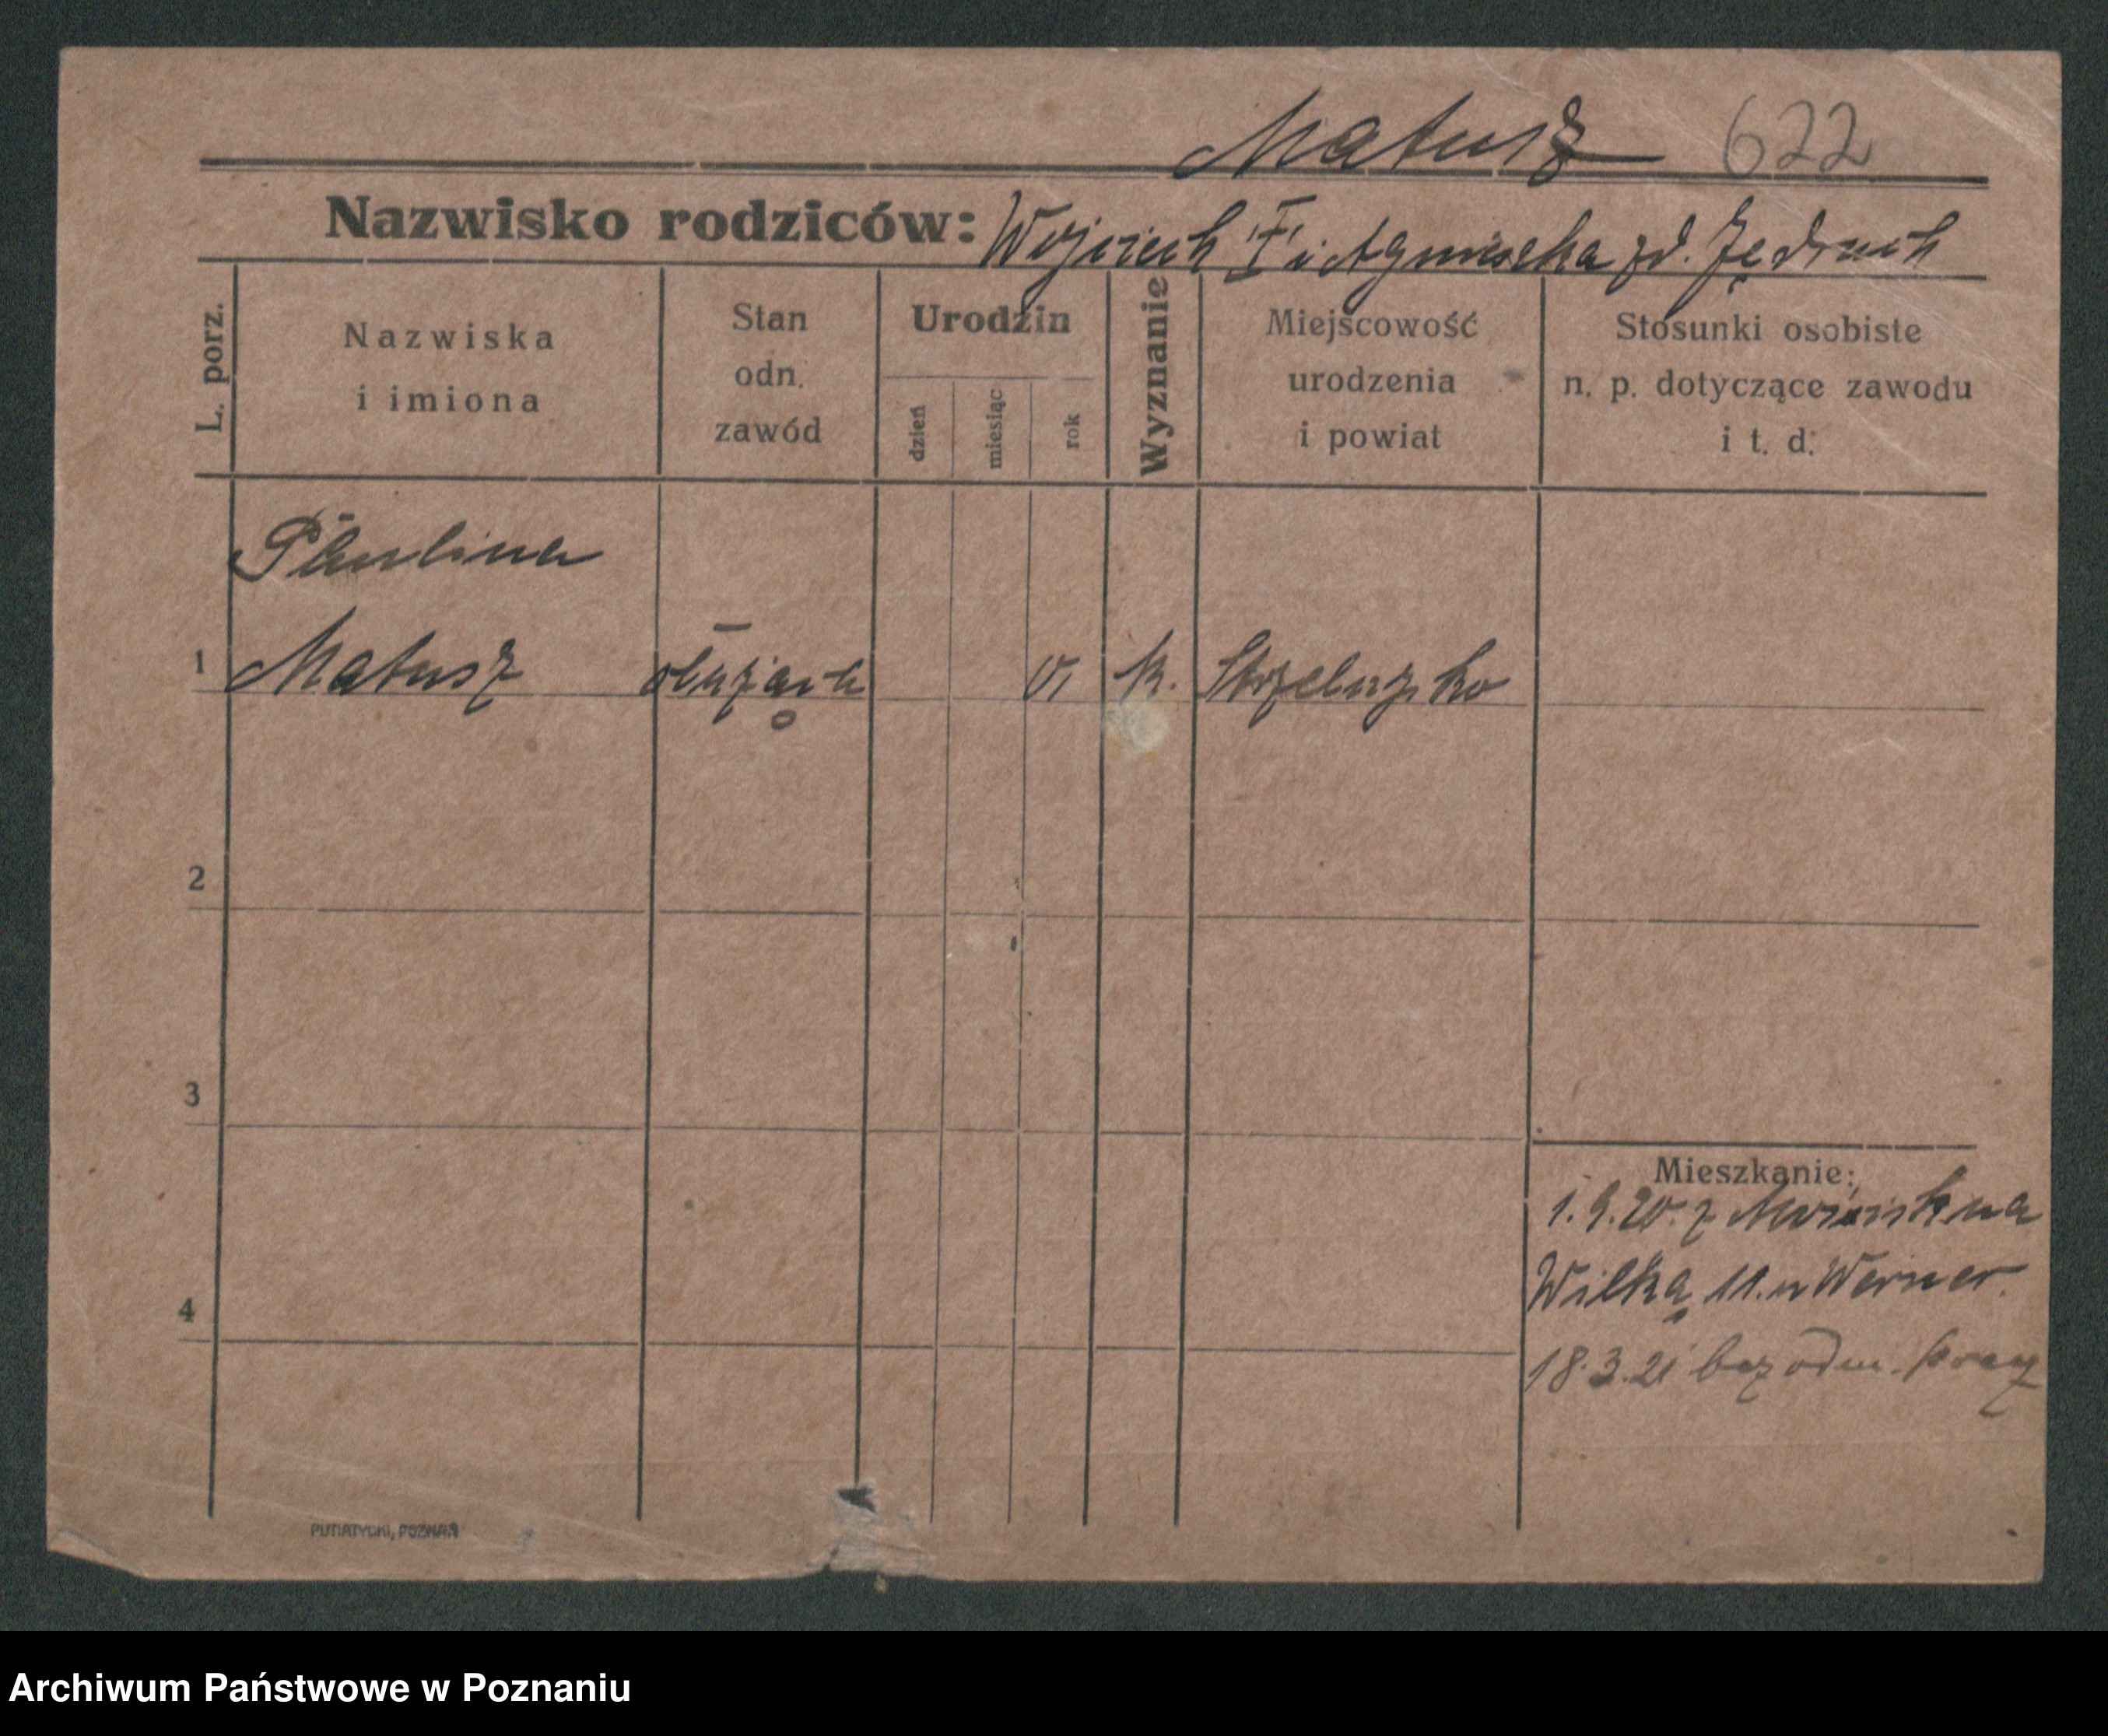 Matusz 622
Nazwisko rodziców: Wojciech † i Agnieszka zd. Jędruch
L. porz.
Nazwiska
i imiona
Stan
odn.
zawód
Urodzin
dzień
miesiąc
rok
Wyznanie
Miejscowość
urodzenia
i powiat
Stosunki osobiste
n. p. dotyczące zawodu
i t. d.
Paulina
1 Matusz służąca k.
2
3
4
Mieszkanie:
1.9.20. z na
Wilka 11. u Werner.
18.3.21 bez odm.
PUTIATYCKI, POZNAŃ
Archiwum Państwowe w Poznaniu